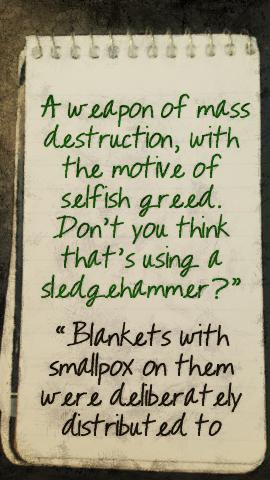 A weapon of mass
destruction, with
the motive of
selfish greed.
Don't you think
that's using a
sledgehammer?"
"Blankets with
smallpox on them
were deliberately
distributed to